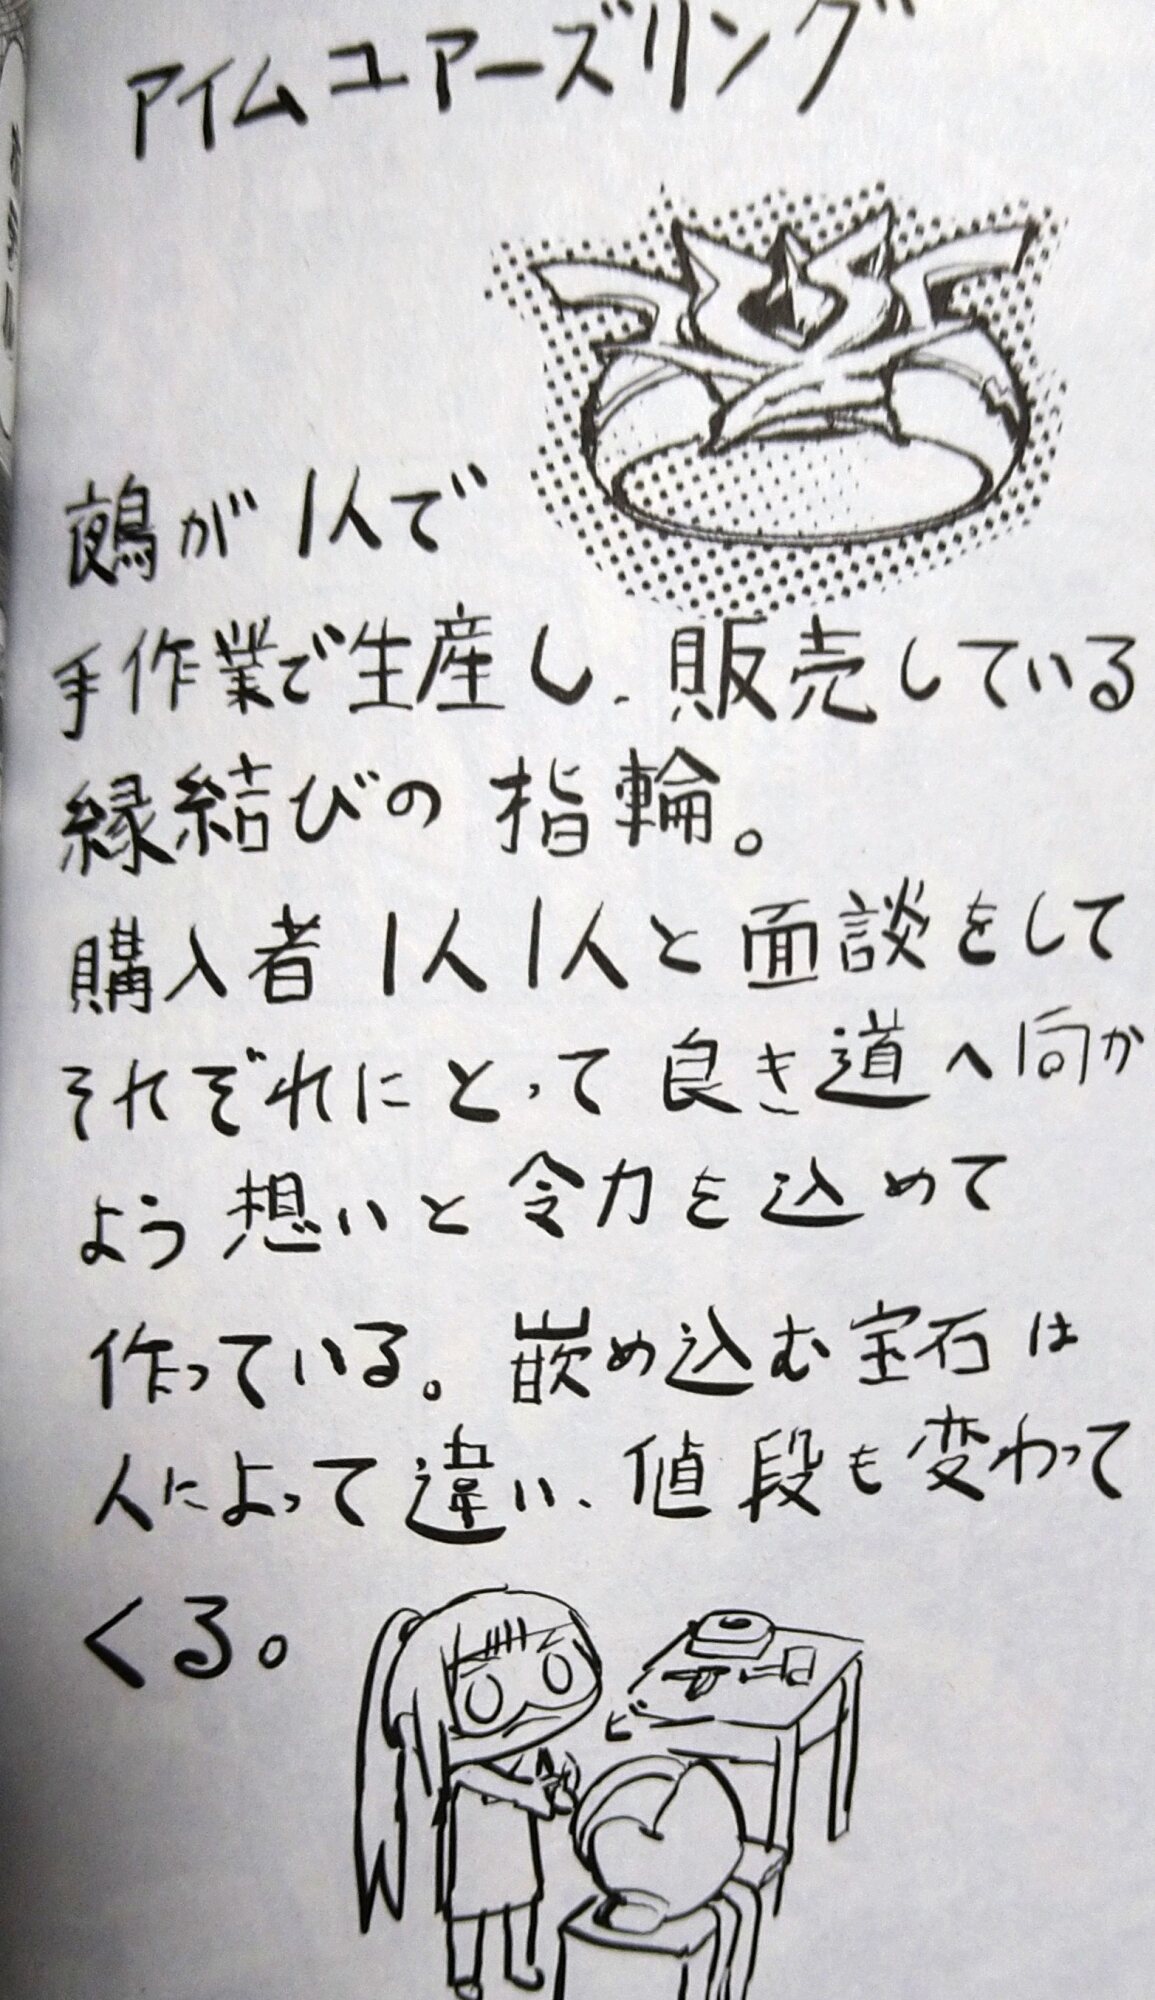 アイムユアーズリング
鵺が1人で
手作業で生産し、販売している
縁結びの指輪。
購入者1人1人と面談をして
それぞれにとって良き道へ向か
よう想いと令力を込めて
作っている。嵌め込む宝石は
人によって違い、値段も変わって
くる。